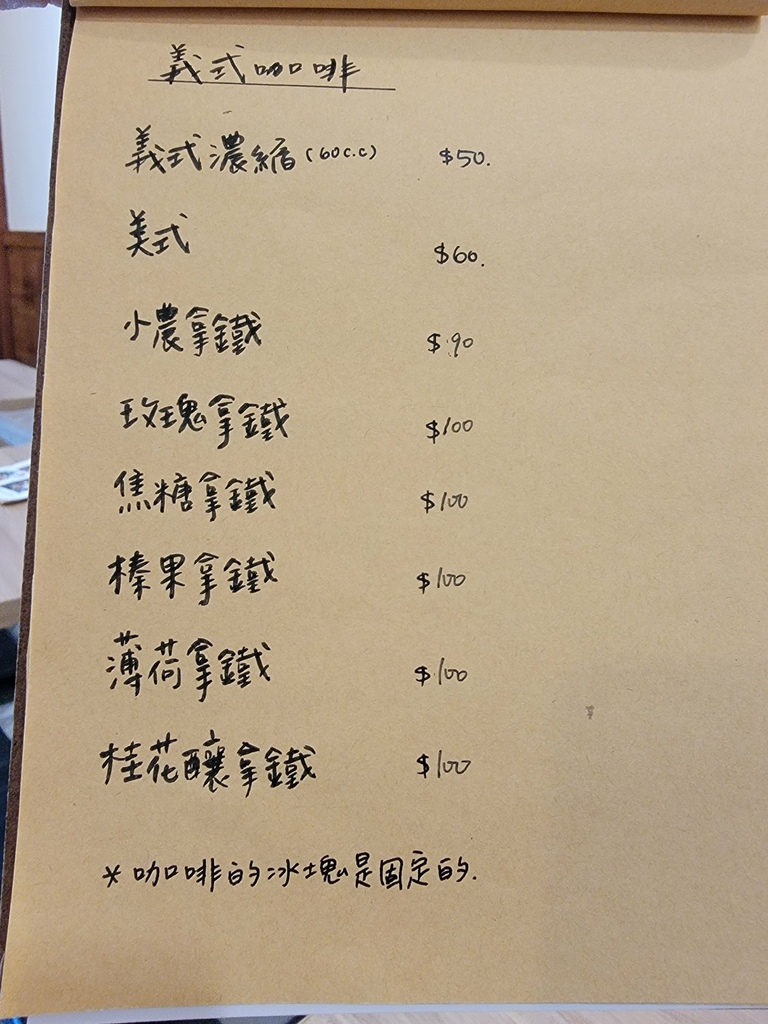 義式咖啡
義式濃縮(60c.c) $50.
美式 $60.
小農拿鐵 $90
玫瑰拿鐵 $100
焦糖拿鐵 $100
榛果拿鐵 $100
薄荷拿鐵 $100
桂花釀拿鐵 $100
*咖啡的冰塊是固定的.